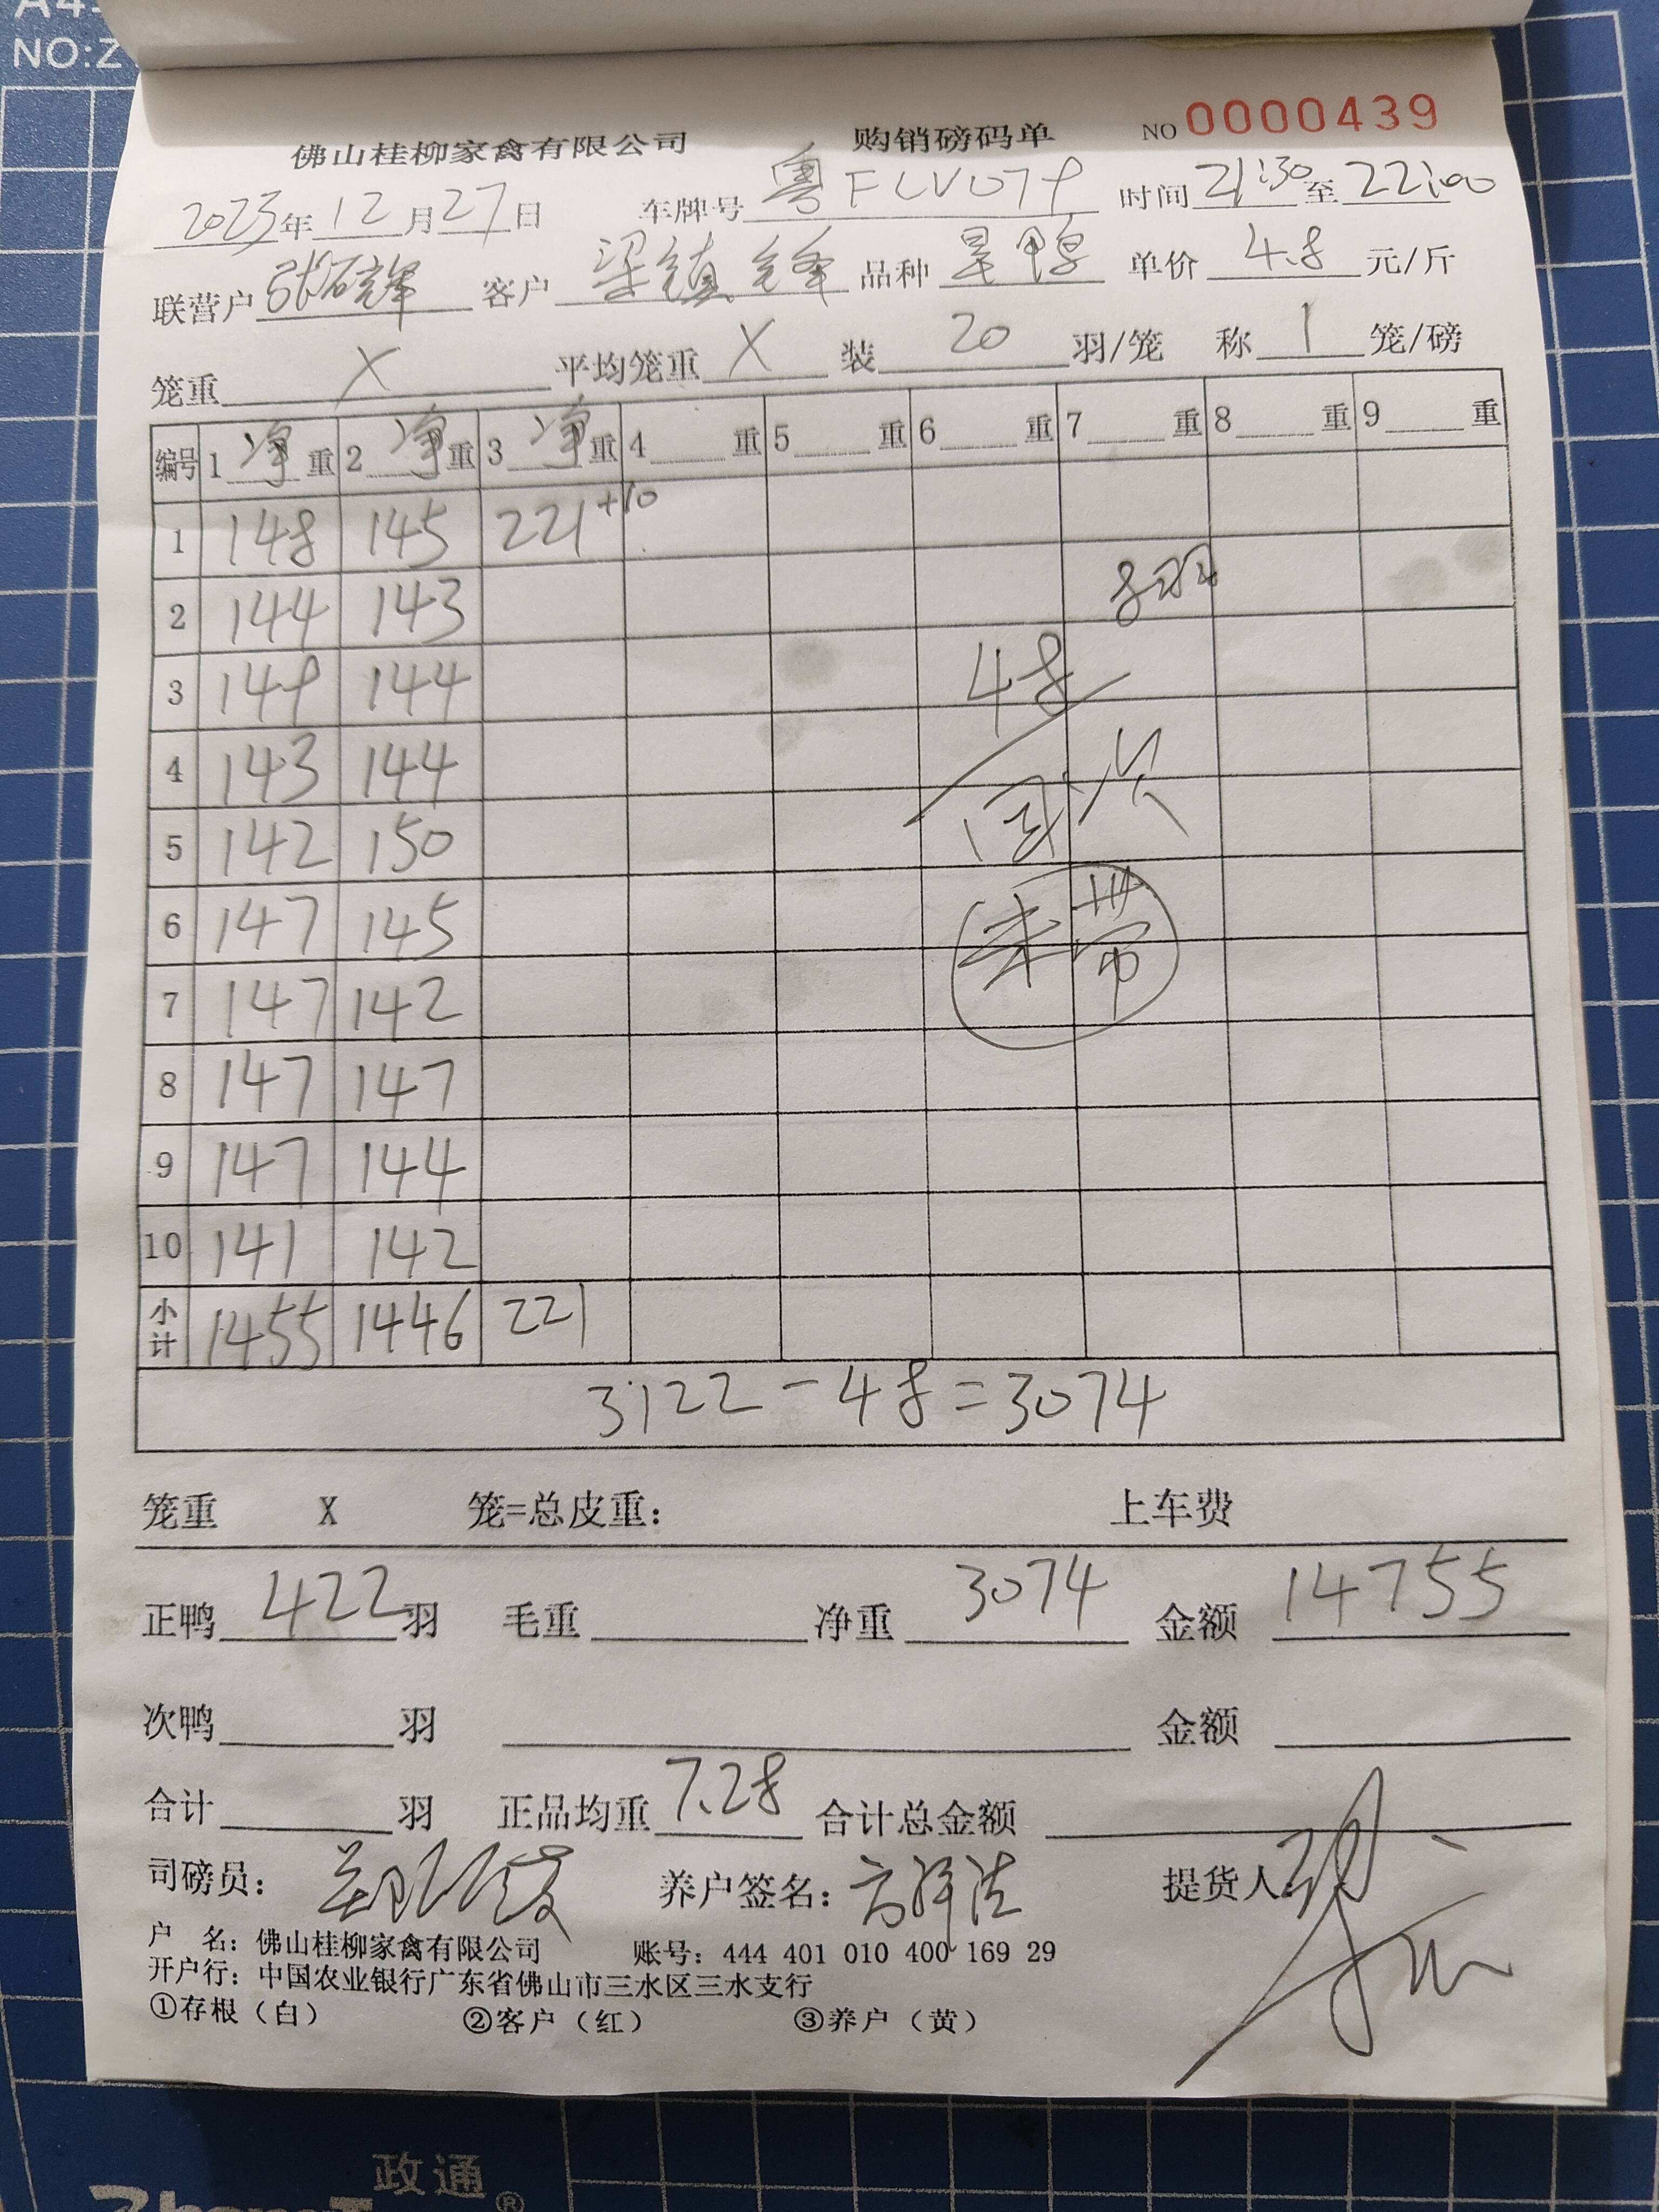 NO:Z
佛山桂柳家禽有限公司 购销磅码单 NO 0000439
2023年12月27日 车牌号 粤 时间 21:30 至 22:00
联营户 客户 梁镇锋 品种 鸭 单价 4.8 元/斤
笼重 X 平均笼重 X 装 20 羽/笼 称 1 笼/磅
编号 1 净 重 2 净 重 3 净 重 4 重 5 重 6 重 7 重 8 重 9 重
1 148 145 221+10
2 144 143 8羽
3 149 144 48
4 143 144
5 142 150
6 147 145 未带
7 147 142
8 147 147
9 147 144
10 141 142
小计 1455 1446 221
3122-48=3074
笼重 X 笼=总皮重: 上车费
正鸭 422 羽 毛重 净重 3074 金额 14755
次鸭 羽 金额
合计 羽 正品均重 7.28 合计总金额
司磅员: 养户签名: 提货人:
户 名: 佛山桂柳家禽有限公司 账号: 444 401 010 400 169 29
开户行: 中国农业银行广东省佛山市三水区三水支行
①存根（白） ②客户（红） ③养户（黄）
政通®